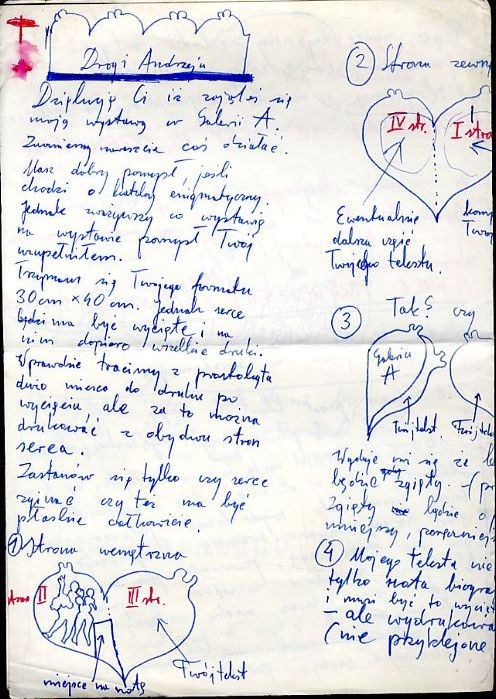 Drogi Andrzeju
Dziękuję Ci iż zająłeś się
moją wystawą w Galerii A.
Zacznijmy nareszcie coś działać.
Masz dobry pomysł, jeśli
chodzi o katalog enigmatyczny.
Jednak zważywszy co wystawię
na wystawie pomysł Twój
uzupełniłem.
Trzymam się Twojego formatu
30cm × 40cm. Jednak serce
będzie ma być wycięte i na
nim dopiero wszelkie druki.
Wprawdzie tracimy z prostokąta
dużo miejsca do druku po
wycięciu, ale za to można
drukować z obydwu stron
serca.
Zastanów się tylko czy serce
zginać czy też ma być
płaskie całkowicie.
① Strona wewnętrzna
II
III str.
miejsce na notę
Twój tekst
② Strona zewn
IV str.
I stro
Ewentualnie
dalsza część
Twojego tekstu.
Twoj
③ Tak? czy
Galeria
A
Twój tekst
Twój tekst
Wydaje mi się że
będzie zgięty.
Zgięty będzie
mniejszy,
④ Mojego tekstu nie
tylko nota biogra
i musi być to wycię
– ale wydrukowa
(nie przyklejone